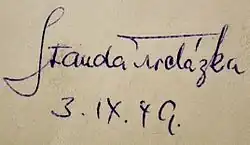 Standa Procházka
3. IX. 49.